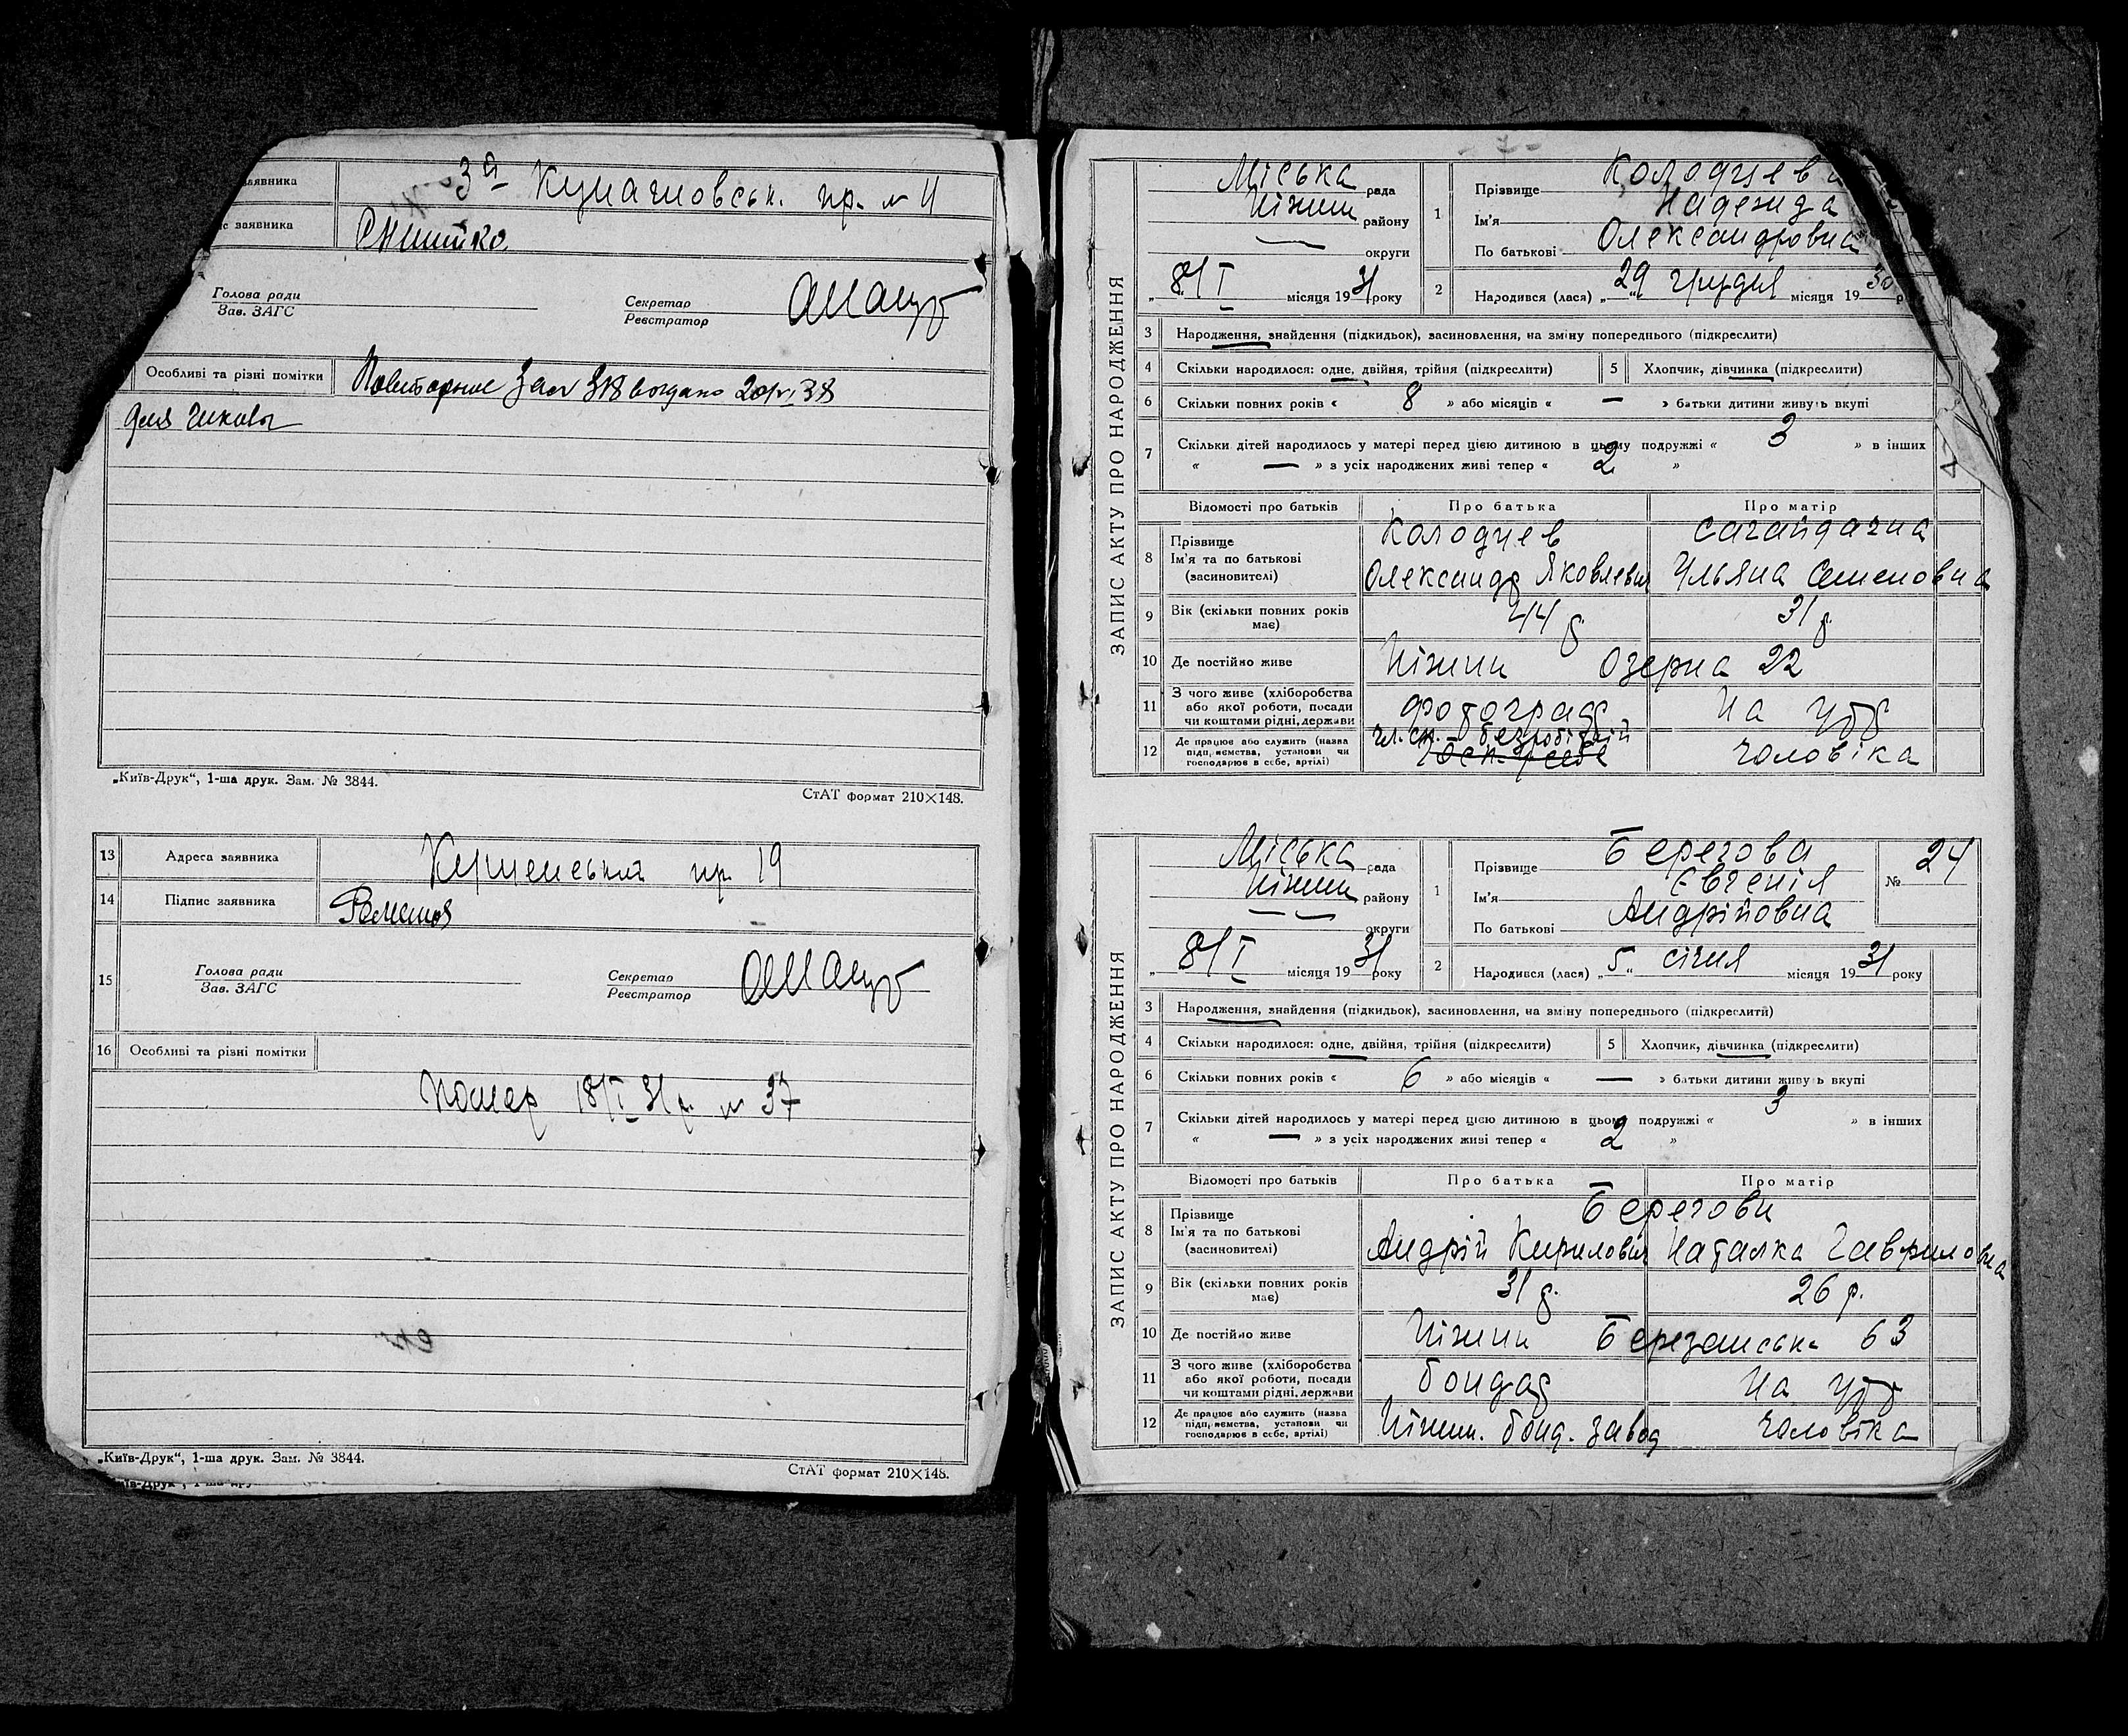 аявника
3й Кунашовськ. пр. № 11
с заявника
Голова ради
Зав. ЗАГС
Секретар
Реєстратор
Особливі та різні помітки
для школы
„Київ-Друк“, 1-ша друк. Зам. № 3844.
СтАТ формат 210×148.
13 Адреса заявника пр. 19
14 Підпис заявника
15 Голова ради
Зав. ЗАГС
Секретар
Реєстратор
16 Особливі та різні помітки
Помер 18/I 31 р. № 37
„Київ-Друк“, 1-ша друк. Зам. № 3844.
СтАТ формат 210×148.
ЗАПИС АКТУ ПРО НАРОДЖЕННЯ
Міська рада
Ніжин району
округи
„ 8/I місяця 1931 року
1 Прізвище Колодцева
Ім'я Надежда
По батькові Олександровна
2 Народився (лася) „29“ грудня місяця 1930 р
3 Народження, знайдення (підкидьок), засиновлення, на зміну попереднього (підкреслити)
4 Скільки народилося: одне, двійня, трійня (підкреслити) 5 Хлопчик, дівчинка (підкреслити)
6 Скільки повних років « 8 » або місяців « — » батьки дитини живуть вкупі
7 Скільки дітей народилось у матері перед цією дитиною в цьому подружжі « 3 » в інших
« — » з усіх народжених живі тепер « 2 »
Відомості про батьків Про батька Про матір
8 Прізвище Колодцев Сагайдачна
Ім'я та по батькові
(засиновителі) Олександр Яковлевич Ульяна Семеновна
9 Вік (скільки повних років має) 44 р. 31 р.
10 Де постійно живе Ніжин Озерна 22
11 З чого живе (хліборобства
або якої роботи, посади
чи коштами рідні, держави фотограф На утр
12 Де працює або служить (назва
підприємства, установи чи
господарює в себе, артілі) чл. сп. – безробітній чоловіка
ЗАПИС АКТУ ПРО НАРОДЖЕННЯ
Міська рада
Ніжин району
округи
„ 8/I місяця 1931 року
1 Прізвище Берегова
Ім'я Євгенія
По батькові Андрійовна
№ 24
2 Народився (лася) „5“ січня місяця 1931 року
3 Народження, знайдення (підкидьок), засиновлення, на зміну попереднього (підкреслити)
4 Скільки народилося: одне, двійня, трійня (підкреслити) 5 Хлопчик, дівчинка (підкреслити)
6 Скільки повних років « 6 » або місяців « — » батьки дитини живуть вкупі
7 Скільки дітей народилось у матері перед цією дитиною в цьому подружжі « 3 » в інших
« — » з усіх народжених живі тепер « 2 »
Відомості про батьків Про батька Про матір
8 Прізвище Берегови
Ім'я та по батькові
(засиновителі) Андрій Кирилович Наталка Гавриловна
9 Вік (скільки повних років має) 31 р. 26 р.
10 Де постійно живе Ніжин Березанськ 63
11 З чого живе (хліборобства
або якої роботи, посади
чи коштами рідні, держави бондар На утр
12 Де працює або служить (назва
підприємства, установи чи
господарює в себе, артілі) Ніжин. бонд. завод чоловіка